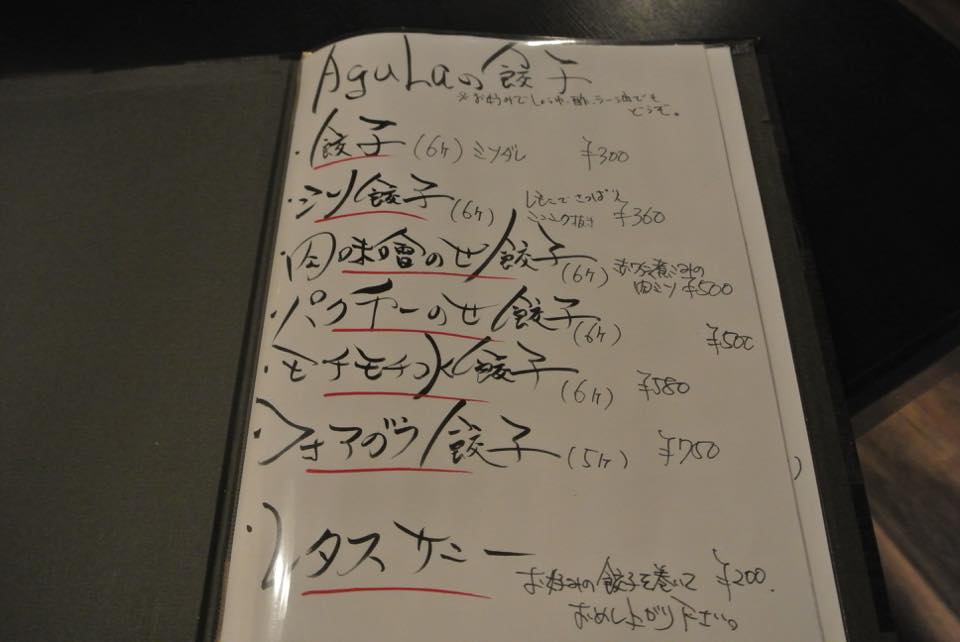 AguLaの餃子
※お好みでしょうゆ、酢、ラー油でも
どうぞ。
・餃子(6ヶ)ミソダレ ¥300
・シソ餃子(6ヶ) ¥360
しそでさっぱり
ニンニク抜き
・肉味噌のせ餃子(6ヶ) 赤ワイン煮こみの
肉ミソ ¥500
・パクチーのせ餃子(6ヶ) ¥500
・モチモチ水餃子(6ヶ) ¥580
・フォアグラ餃子(5ヶ) ¥750
・レタス サニー ¥200
お好みの餃子を巻いて
おめし上がり下さい。